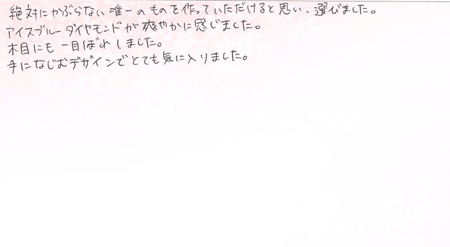 絶対にかぶらない唯一のものを作っていただけると思い、選びました。
アイスブルーダイヤモンドが爽やかに感じました。
木目にも一目ぼれしました。
手になじむデザインでとても気に入りました。